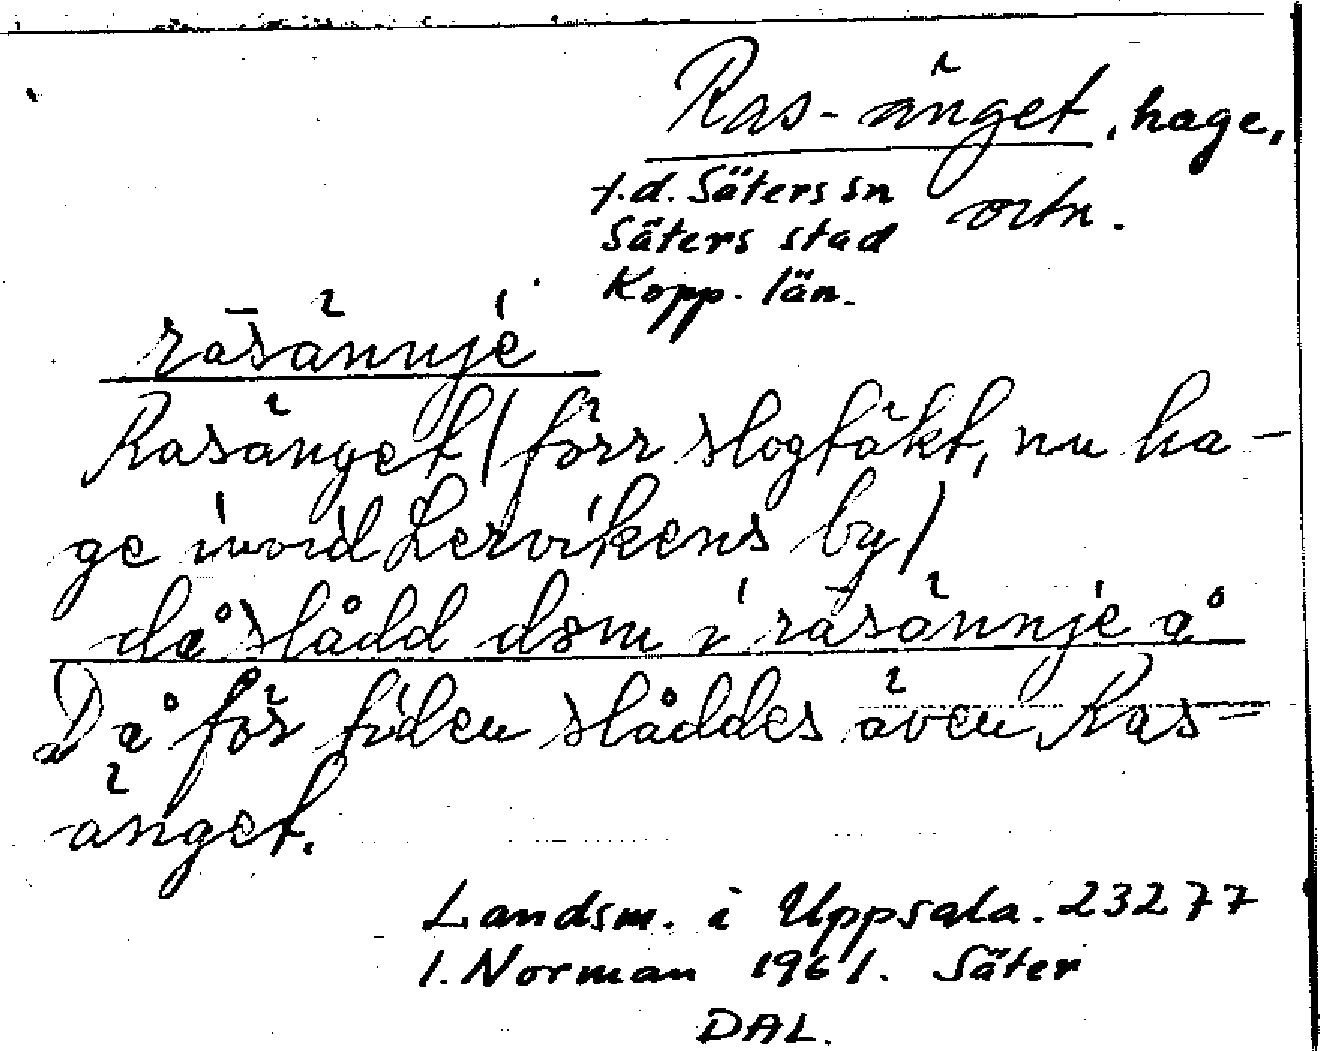 Ras-änget, hage,
f.d. Säters sn ortn.
Säters stad
Kopp. län.
rāsännjé
Rasänget (förr slogtäkt, nu ha-
ge invid Lervikens by)
då slådd dom i rāsännjé å
Då för tiden slåddes även Ras-
änget.
Landsm. i Uppsala. 23277
I. Norman 1961. Säter
DAL.